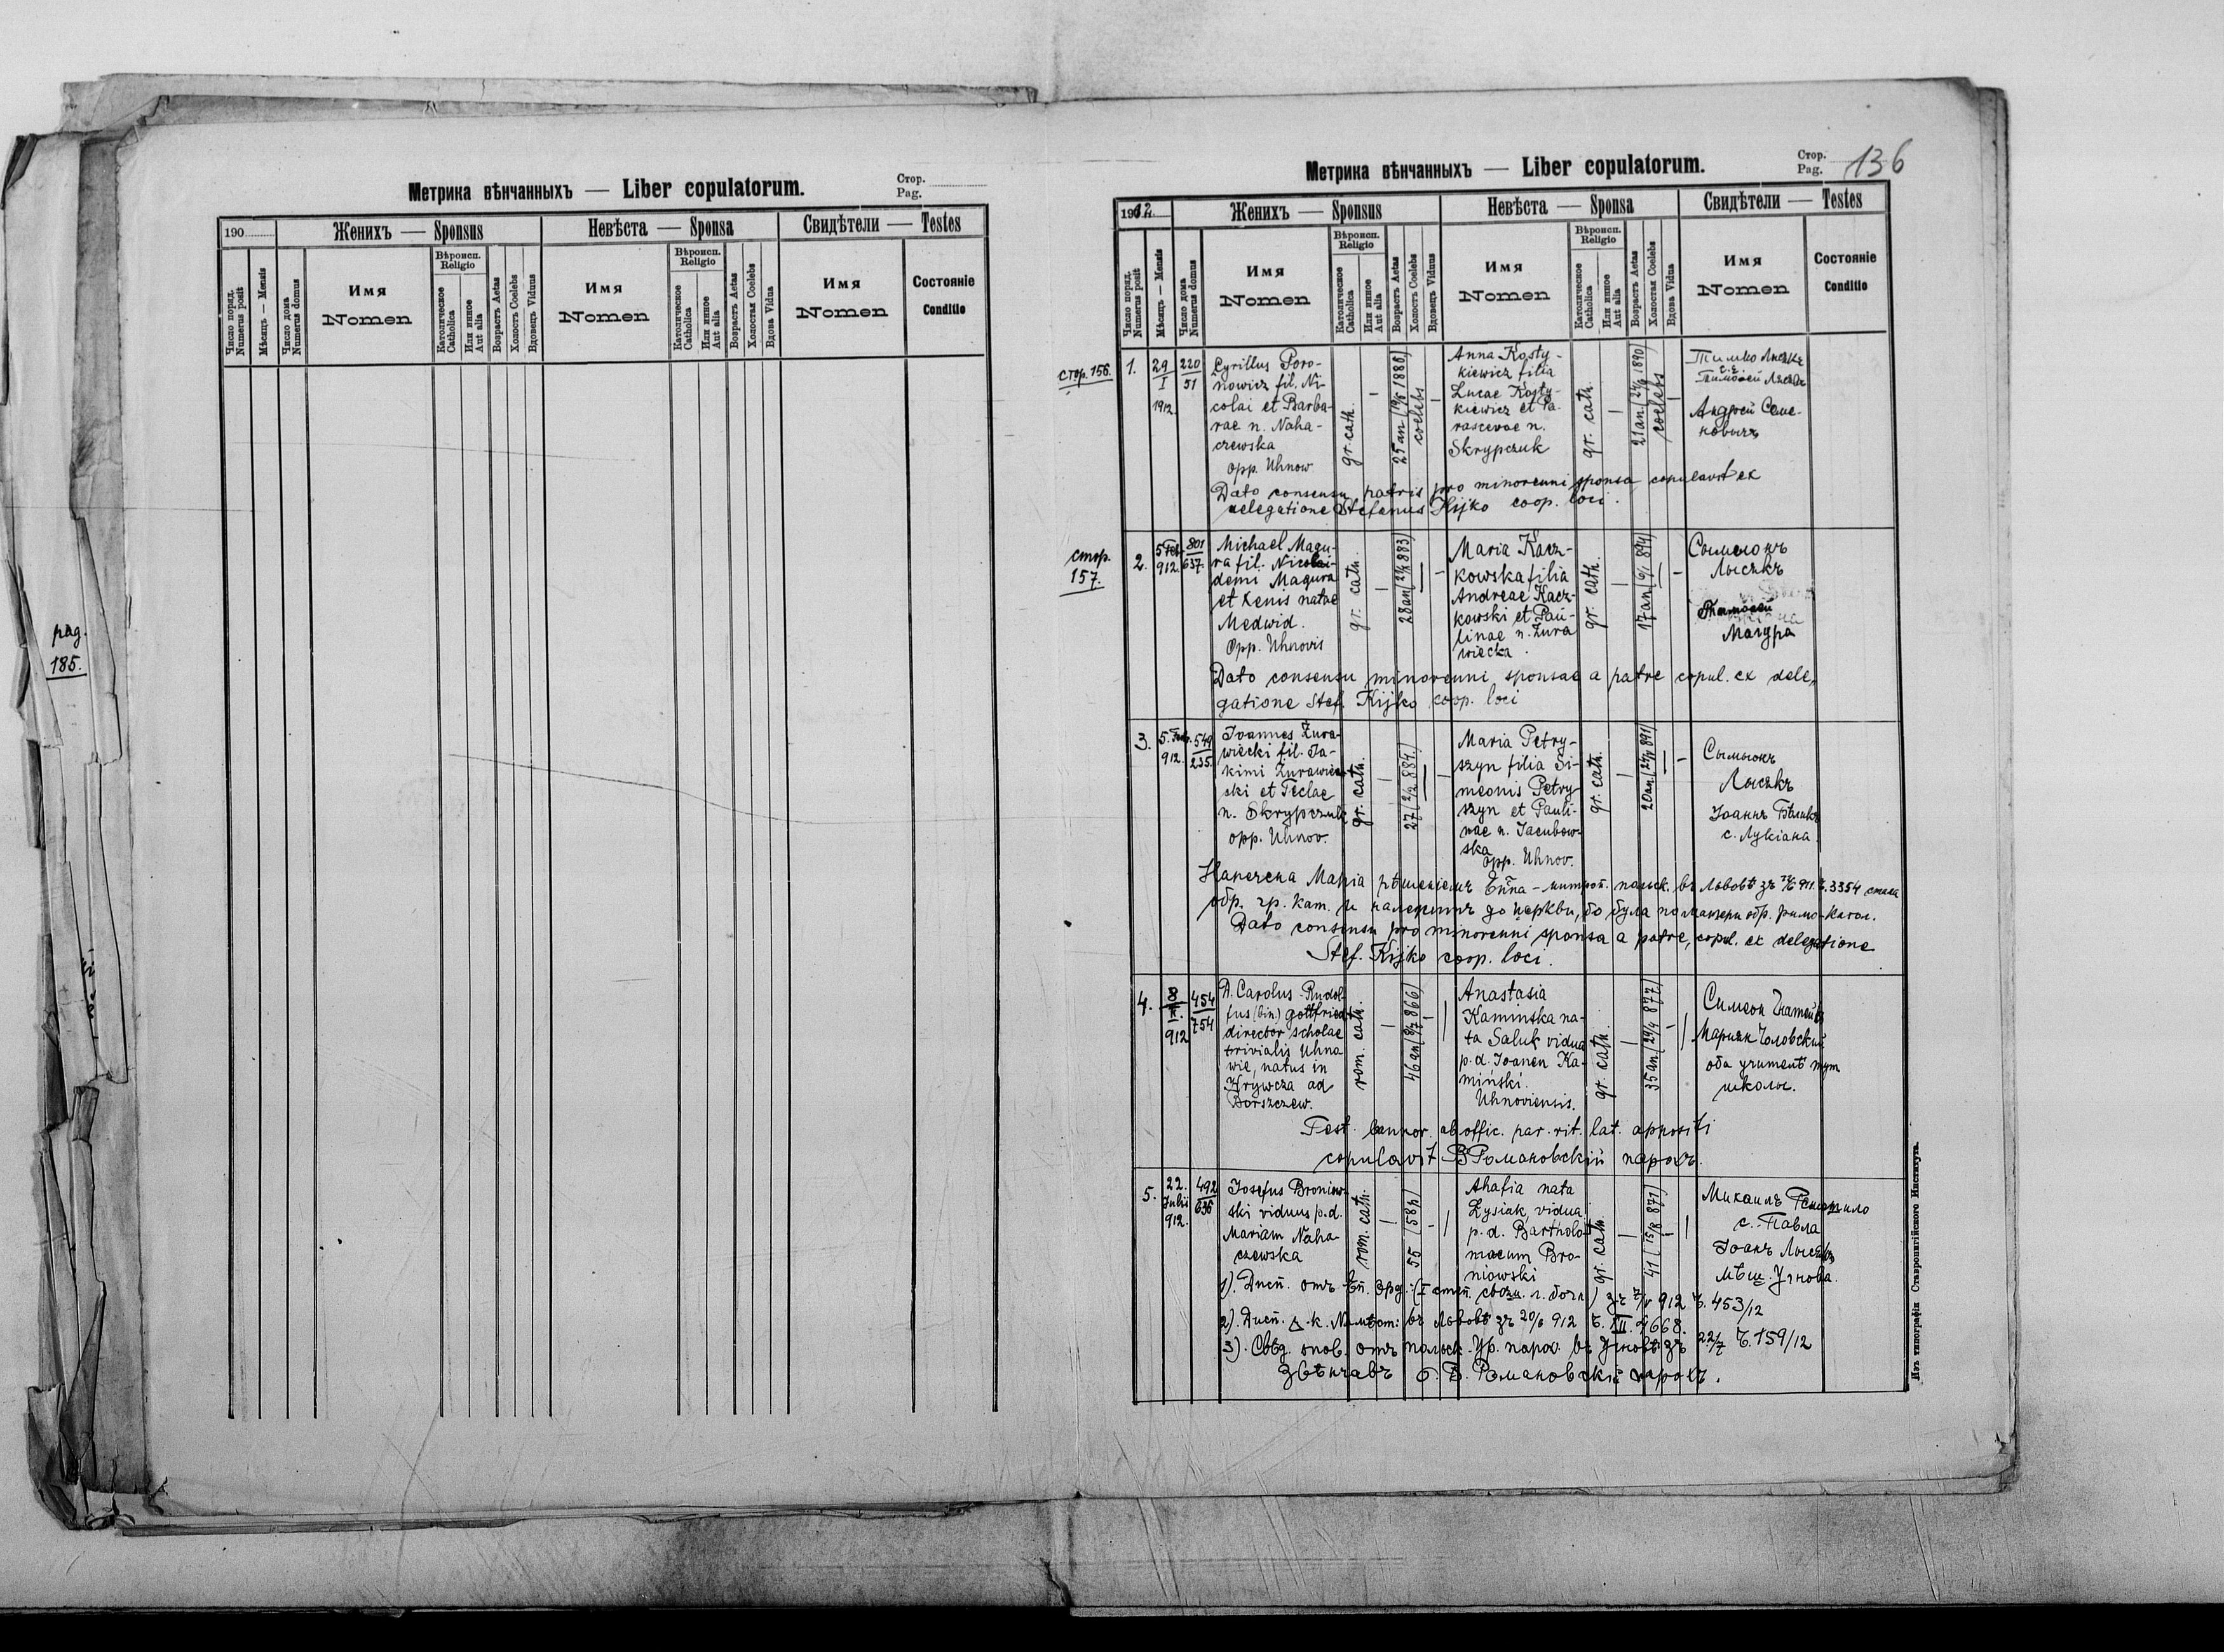 Метрика вѣнчанныхъ — Liber copulatorum.
Стор.
Pag.
190
Женихъ — Sponsus
Невѣста — Sponsa
Свидѣтели — Testes
Число поряд.
Numerus posit
Мѣсяцъ — Mensis
Число дома
Numerus domus
Имя
Nomen
Вѣроисп.
Religio
Католическое
Catholica
Или инное
Aut alia
Возрастъ Aetas
Холостъ Coelebs
Вдовецъ Viduus
Имя
Nomen
Вѣроисп.
Religio
Католическое
Catholica
Или инное
Aut alia
Возрастъ Aetas
Холостая Coelebs
Вдова Vidua
Имя
Nomen
Состояніе
Conditio
pag.
185.
Метрика вѣнчанныхъ — Liber copulatorum.
Стор.
Pag.
136
1912
Женихъ — Sponsus
Невѣста — Sponsa
Свидѣтели — Testes
Число поряд.
Numerus posit
Мѣсяцъ — Mensis
Число дома
Numerus domus
Имя
Nomen
Вѣроисп.
Religio
Католическое
Catholica
Или инное
Aut alia
Возрастъ Aetas
Холостъ Coelebs
Вдовецъ Viduus
Имя
Nomen
Вѣроисп.
Religio
Католическое
Catholica
Или инное
Aut alia
Возрастъ Aetas
Холостая Coelebs
Вдова Vidua
Имя
Nomen
Состояніе
Conditio
стор. 156.
1.
29
I
1912.
220
51
Cyrillus Poro-
nowicz fil. Ni-
colai et Barba-
rae n. Naha-
czewska
opp. Uhnow
gr. cath.
25 an
1886)
coelebs
Anna Kosty-
kiewicz filia
Lucae Kosty-
kiewicz et Pa-
rascevae n.
Skrypczuk
gr. cath.
21 an.
1890)
coelebs
Тимко Лысякъ
Тимоѳей Лысякъ
Андрей Семе-
новычъ
Dato consensu patris pro minorenni sponsa copulavit ex
delegatione Stefanus Kijko coop. loci.
стор.
157.
2.
5 Feb.
912.
801
637.
Michael Magu-
ra fil. Nicolai-
demi Magura
et Xenis natae
Medwid.
Opp. Uhnovis
gr. cath.
28 an
883)
Maria Kacz-
kowska filia
Andreae Kacz-
kowski et Pau-
linae n. Żura
wiecka.
gr. cath.
17 an
894)
Сымеонъ
Лысякъ
Тимоѳей
Магура
Dato consensu minorenni sponsae a patre copul. ex dele,,
gatione Stef. Kijko coop. loci
3.
5. Feb.
912.
549
235.
Joannes Żura-
wiecki fil. Ja-
kimi Żurawiec-
ski et Teclae
n. Skrypczuk
opp. Uhnov.
gr. cath.
27
884)
Maria Petry-
szyn filia Si-
meonis Petry-
szyn et Pauli-
nae n. Jacubow-
ska
opp. Uhnov.
gr. cath.
20 an.
891)
Сымеонъ
Лысякъ
Іоаннъ
с. Лукіана.
Наречена Марія рѣшеніемъ Еп̃па - митроп. въ Львовѣ зъ 911. ч. 3354 стала
обр. гр. кат. и належитъ до церкви, бо була по матери обр. римо-катол.
Dato consensu pro minorenni sponsa a patre, copul. ex delegatione
Stef. Kijko coop. loci.
4.
8
II.
912
454
754
D. Carolus-Rudol-
fus (bin.) Gottfried
director scholae
trivialis Uhno
wie, natus in
Krywcza ad
Borszczew.
rom. cath.
46 an
866)
Anastasia
Kamińska na-
ta Saluk vidua
p. d. Joanen Ka-
miński.
Uhnoviensis.
gr. cath.
35 an.
877)
Симеон
Маріян Чоловскій
оба учителѣ тут
школы.
Test. bannor. ab offic. par. rit. lat. appositi
copulavit В Романовскій парохъ.
5.
22.
Julii
912.
492
636
Josefus Broniow-
ski viduus p. d.
Mariam Naha-
czewska
rom. cath.
55
Ahafia nata
Łysiak, vidua
p. d. Bartholo-
maeum Bro-
niowski
gr. cath.
41
15/8 871)
Михаилъ
с. Павла
Іоанъ Лысякъ
мѣщ. Угнова.
1). Дисп. отъ Еп. Орд. (I степ. зъ 912 ч. 453/12
2). Дисп. ц. к. Намѣст: въ Львовѣ зъ 20/6 912 ч. XII. 2668.
3). Свѣд. опов. отъ польск. Ур. парох. въ Угновѣ зъ 22/7 ч. 159/12
Звѣнчавъ о. В. Романовскій парохъ.
Изъ типографіи Ставропигійского Института.